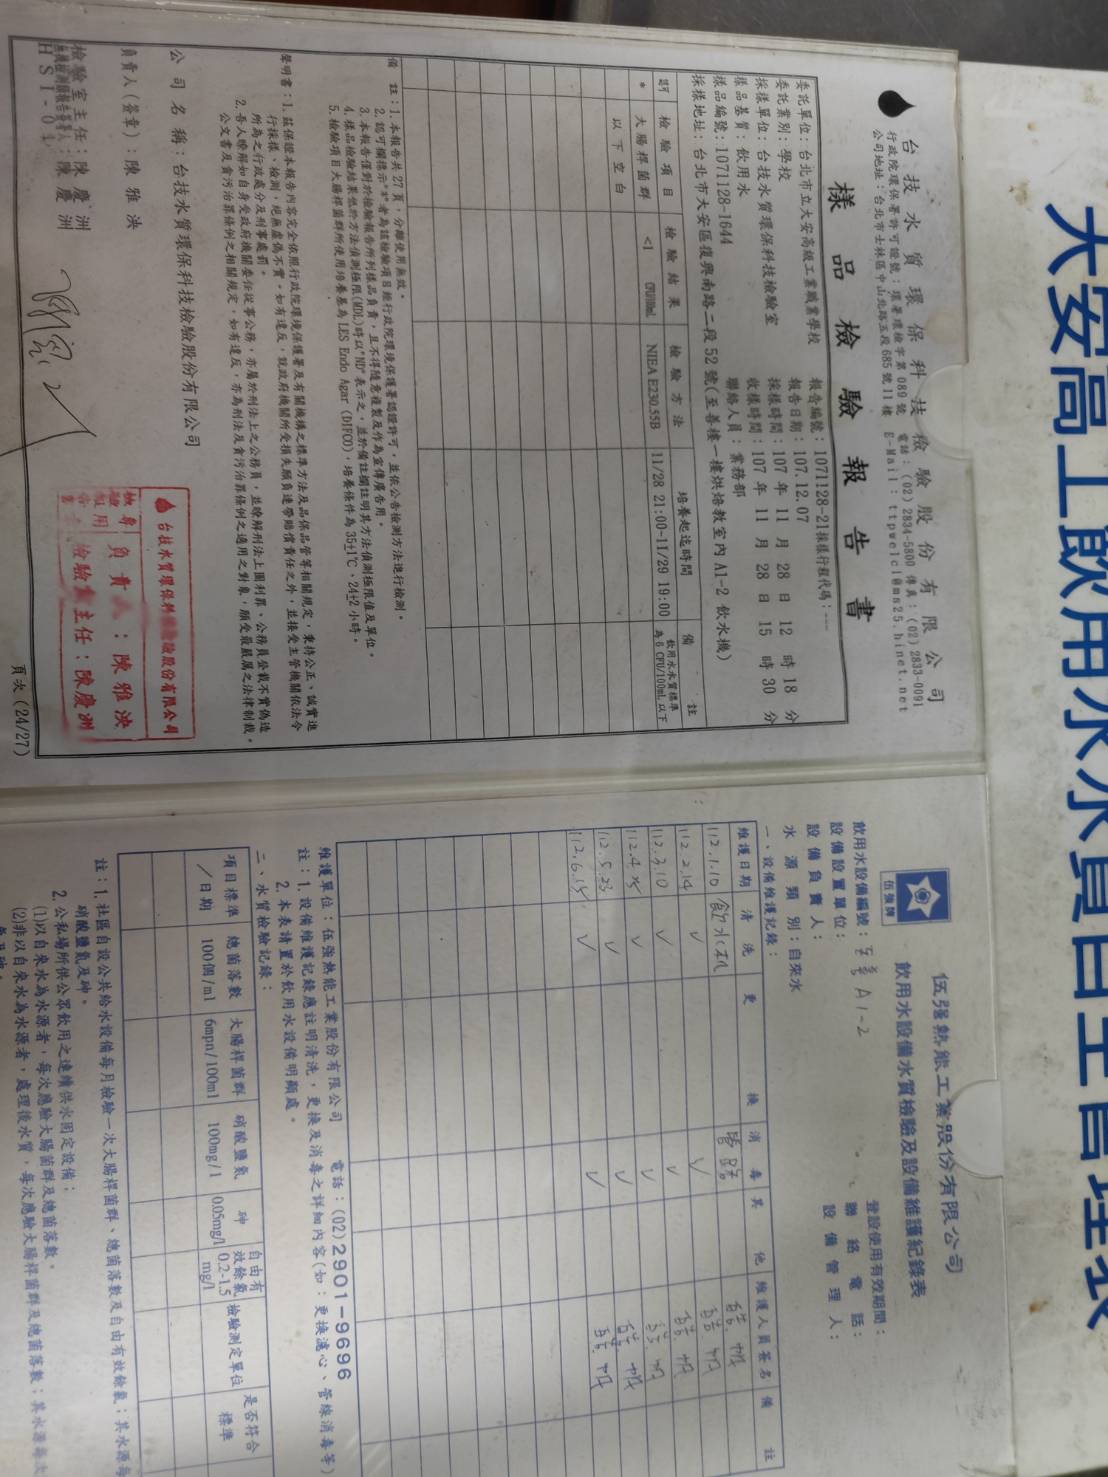 大安高工飲用水水質自主管理表
台技水質環保科技檢驗股份有限公司
行政院環保署許可證號：環署環檢字第 089 號 電話：(02) 2834-5800 傳真：(02) 2833-0091
公司地址：台北市士林區中山北路五段 685 號 11 樓 E-Mail：ttpwelcl@ms25.hinet.net
樣品檢驗報告書
委託單位：台北市立大安高級工業職業學校 報告編號：1071128-21採樣行程代碼：---
委託業別：學校 報告日期：107.12.07
採樣單位：台技水質環保科技檢驗室 採樣時間：107 年 11 月 28 日 12 時 18 分
樣品基質：飲用水 收樣時間：107 年 11 月 28 日 15 時 30 分
樣品編號：1071128-1644 聯絡人員：業務部
採樣地址：台北市大安區復興南路二段 52 號(至善樓一樓烘焙教室內 A1-2 飲水機)
許可 檢驗項目 檢驗結果 檢驗方法 培養起迄時間 備註
* 大腸桿菌群 <1 CFU/100mL NIEA E230.55B 11/28 21:00~11/29 19:00 飲用水水質標準為 6 CFU/100mL 以下
以下空白
備 註：1. 本報告共 27 頁，分離使用無效。
2. 認可欄標示"*"者為該檢驗項目經行政院環境保護署認證許可，並依公告檢測方法進行檢測。
3. 本報告僅對於檢驗報告所列樣品負責，且不得隨意複製及作為宣傳廣告用。
4. 樣品檢驗結果低於方法偵測極限(MDL)時以"ND"表示之，並於備註欄註明其方法偵測極限值及單位。
5. 檢驗項目大腸桿菌群所使用培養基為 LES Endo Agar (DIFCO)，培養條件為 35±1℃、24±2 小時。
聲明書：1. 茲保證本報告內容完全依照行政院環境保護署及有關機構之標準方法及品保品管等相關規定，秉持公正、誠實進
行採樣、檢測，絕無虛偽不實。如有違反，就政府機關所受損失願負連帶賠償責任之外，並接受主管機關依法令
所為之行政處分及刑事處罰。
2. 吾人瞭解如自身受政府機關委任從事公務，亦屬於刑法上之公務員，並瞭解刑法上圖利罪、公務員登載不實偽造
公文書及貪污治罪條例之相關規定，如有違反，亦為刑法及貪污治罪條例之適用之對象，願受最嚴厲之法律制裁。
公 司 名 稱：台技水質環保科技檢驗股份有限公司
負責人(簽章)：陳雅泱
檢驗室主任：陳慶洲
陳慶洲
HSI-01
台技水質環保科技檢驗股份有限公司
負責人：陳雅泱
檢驗室主任：陳慶洲
頁次 (24/27)
伍強牌
伍強熱能工業股份有限公司
飲用水設備水質檢驗及設備維護紀錄表
飲用水設備編號：至善 A1-2 登設使用有效期間：
設備設置單位： 聯絡電話：
設備負責人： 設備管理人：
水源類別：自來水
一、設備維護記錄：
維護日期 清洗 更換 消毒 其他 維護人員簽名 備註
112.1.10 飲水機
112.2.14 ✓ ✓
112.3.10 ✓ ✓
112.4.25 ✓ ✓
112.5.23 ✓ ✓
112.6.15 ✓ ✓
維護單位：伍強熱能工業股份有限公司 電話：(02)2901-9696
註：1. 設備維護記錄應註明清洗，更換及消毒之詳細內容(如：更換濾心、管線消毒等)
2. 本表請置於飲用水設備明顯處。
二、水質檢驗記錄：
項目標準/日期 總菌落數 100個/ml 大腸桿菌群 6mpn/100ml 硝酸鹽氮 100mg/l 砷 0.05mg/l 自由有效餘氯 0.2-1.5 mg/l 檢驗測定單位 是否符合標準
註：1. 社區自設公共給水設備每月檢驗一次大腸桿菌群、總菌落數及自由有效餘氯；其水源每
硝酸鹽氮及砷。
2. 公私場所供公眾飲用之連續供水固定設備：
(1)以自來水為水源者，每次應驗大腸菌群及總菌落數。
(2)非以自來水為水源者，處理後水質，每次應驗大腸桿菌群及總菌落數；其水源每次